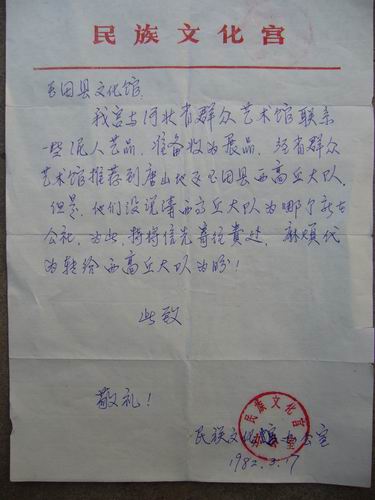 民族文化宫
玉田县文化馆.
我宫与河北省群众艺术馆联系
一些泥人艺品, 准备收为展品. 经省群众
艺术馆推荐到唐山地区玉田县西高丘大队.
但是. 他们没说清西高丘大队为哪个
公社. 为此, 特将信先寄往贵处, 麻烦代
为转给西高丘大队为盼!
此致
敬礼!
民族文化宫办公室
1982.3.17